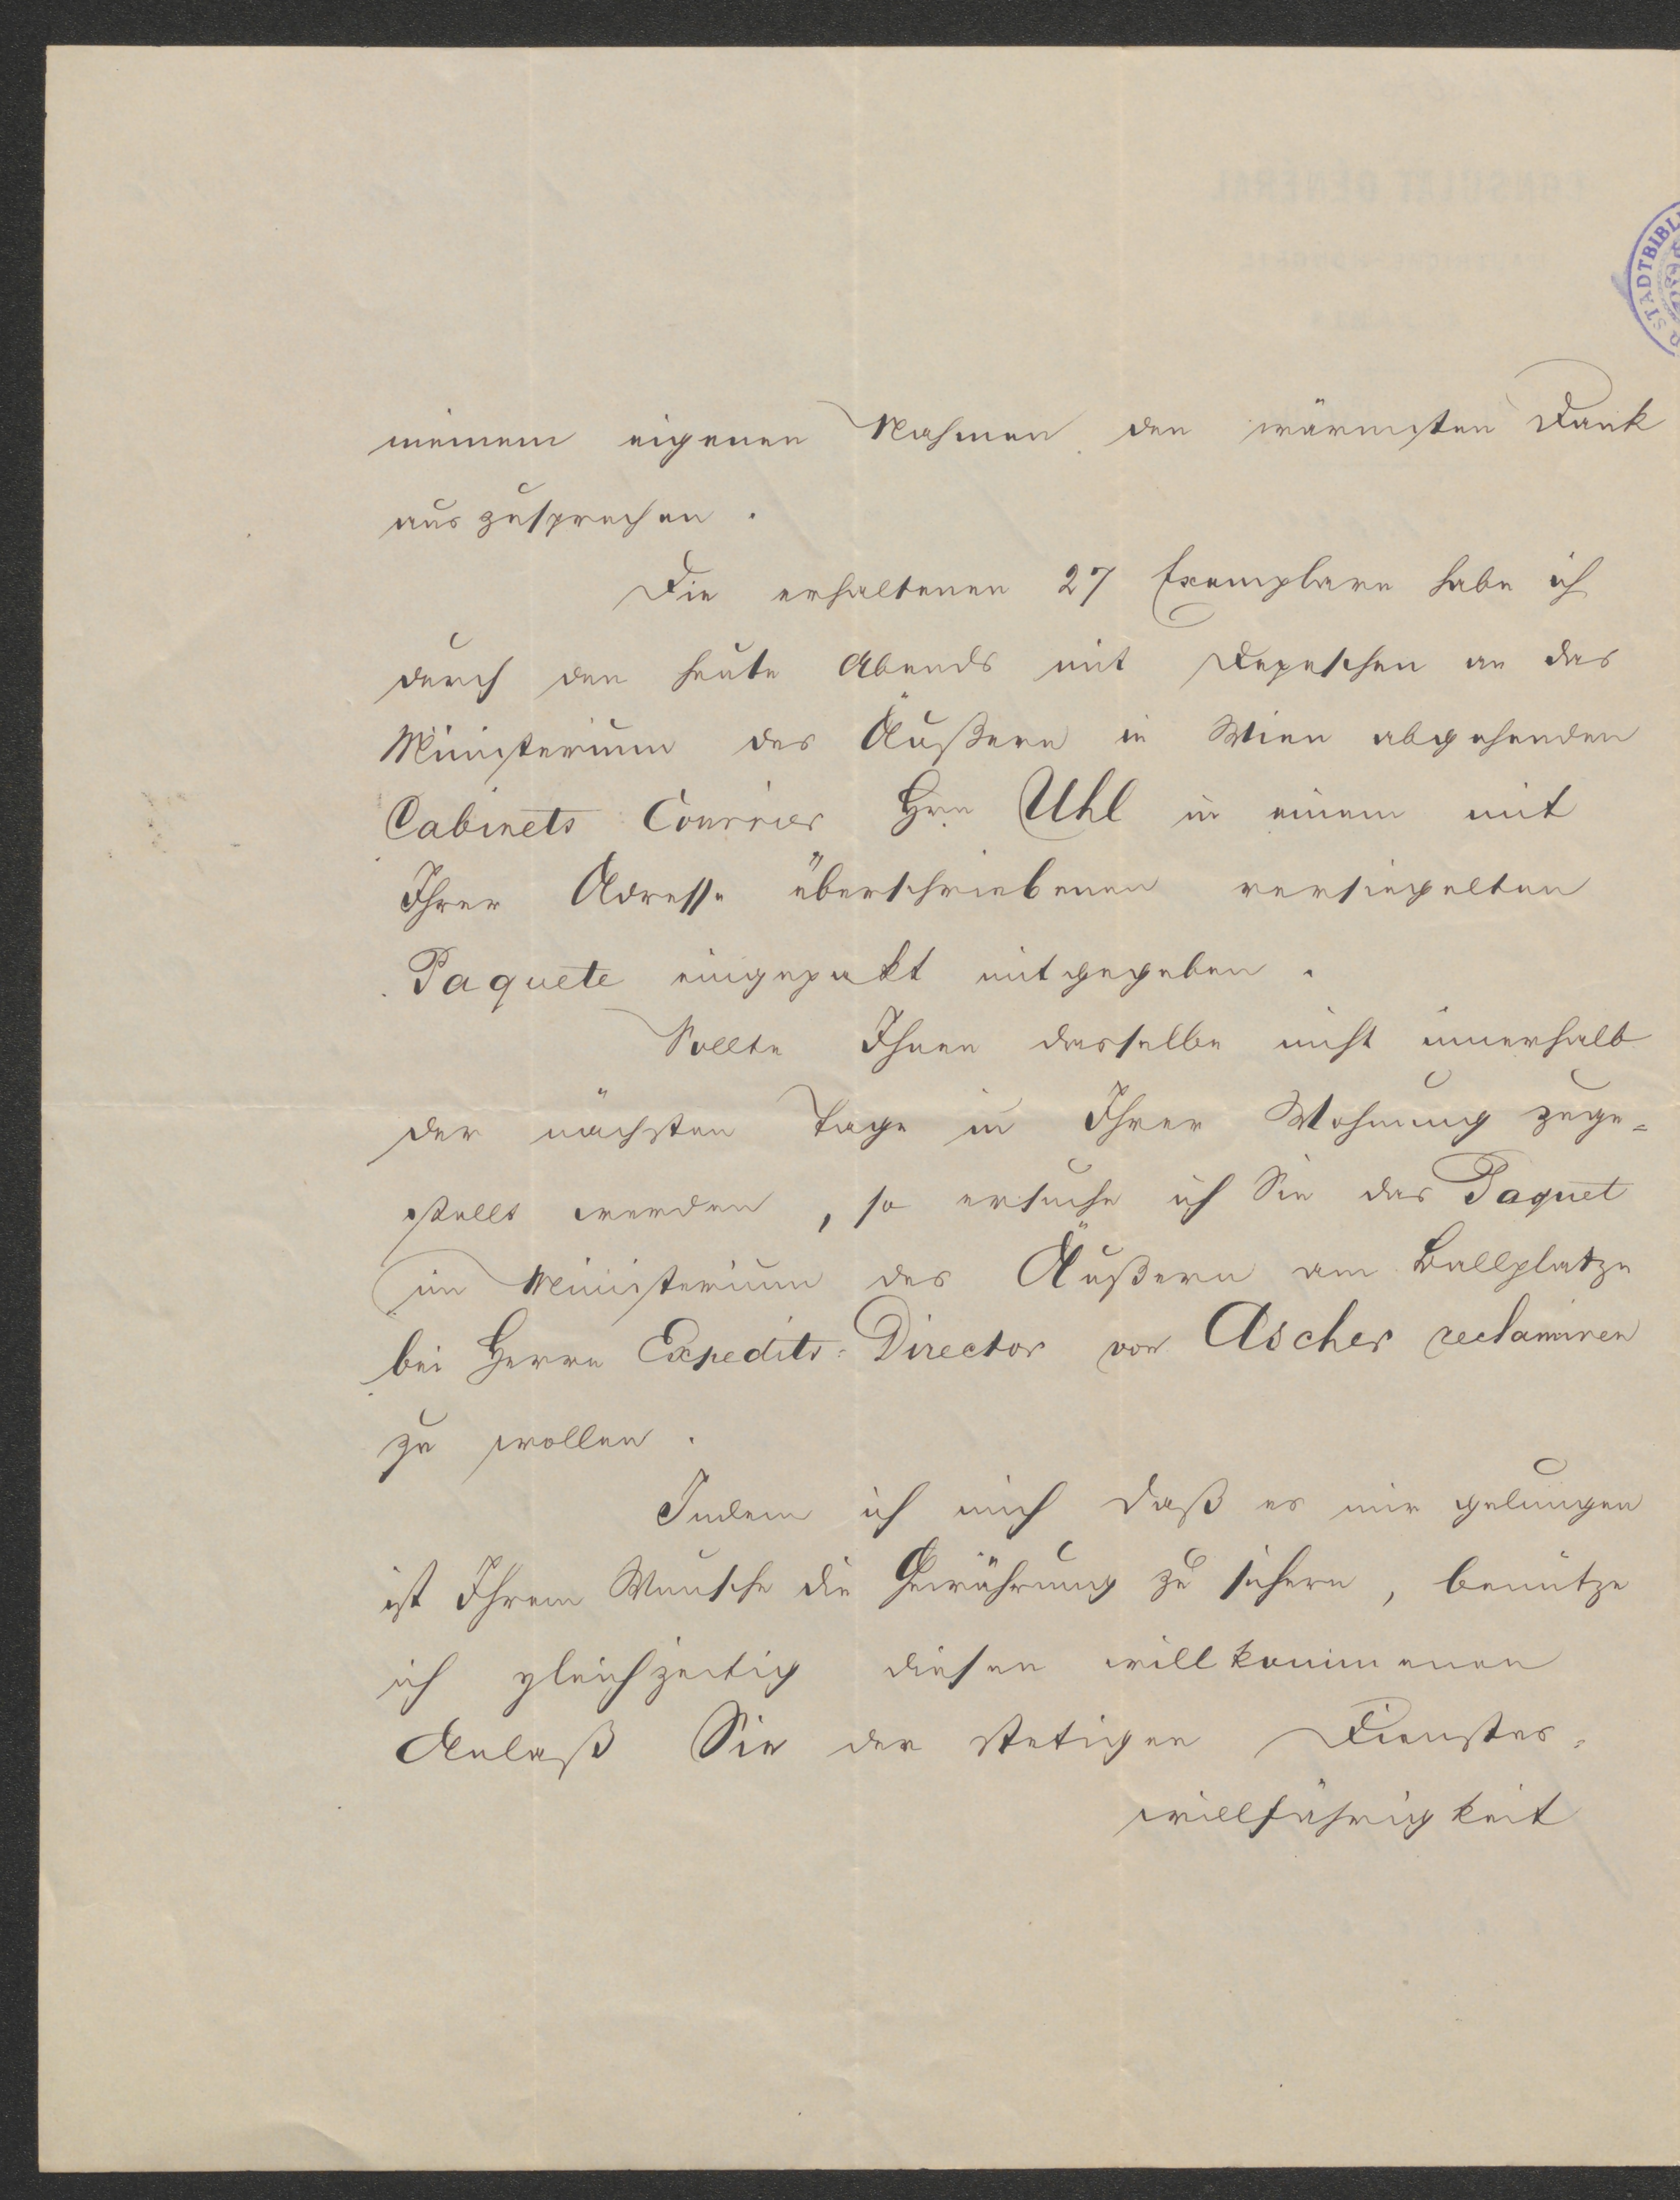 STADTBIBL
meinem eigenen Nahmen den wärmsten Dank
auszusprechen.
Die erhaltenen 27 Exemplare habe ich
durch den heute Abends mit Depeschen an das
Ministerium des Äußern in Wien abgehenden
Cabinets Courrier Hrn Uhl in einem mit
Ihrer Adresse überschriebenen versiegelten
Paquete eingepakt mitgegeben.
Sollte Ihnen dasselbe nicht innerhalb
der nächsten Tage in Ihrer Wohnung zuge=
stellt werden, so ersuche ich Sie das Paquet
im Ministerium des Äußern am Ballplatze
bei Herrn Expedits=Director von Ascher reclamiren
zu wollen.
Indem ich mich daß es mir gelungen
ist Ihrem Wunsche die Gewährung zu sichern, benütze
ich gleichzeitig diesen willkommenen
Anlaß Sie der stetigen Dienstes=
willfährigkeit